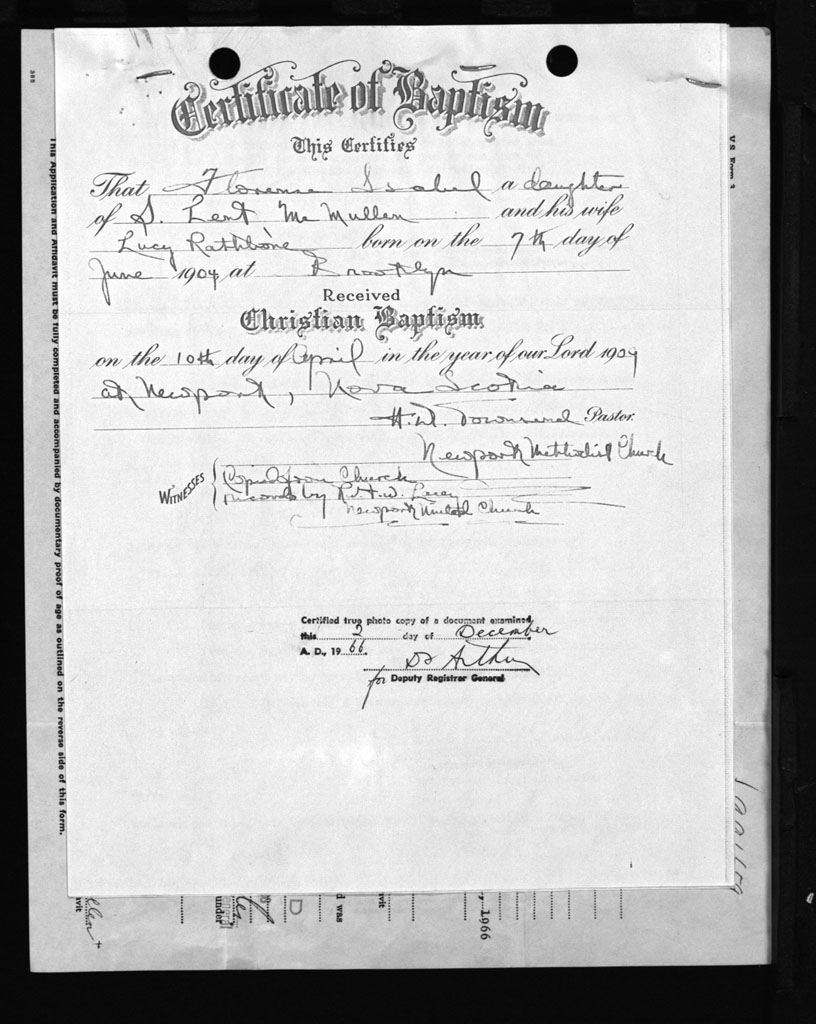 Certificate of Baptism
This Certifies
That Florence Isabel a daughter
of S. Lent Mc Mullen and his wife
Lucy Rathbone born on the 7th day of
June 1904 at Brooklyn
Received
Christian Baptism
on the 10th day of April in the year of our Lord 1909
at Newport, Nova Scotia
H.W. Townsend Pastor.
Newport Methodist Church
WITNESSES
Copied from Church
records by
Newport United Church
Certified true photo copy of a document examined
this 2 day of December
A. D., 19 66.
for Deputy Registrar General
This Application and Affidavit must be fully completed and accompanied by documentary proof of age as outlined on the reverse side of this form.
V.S. Form 3
385
under
D
d was
, 1966